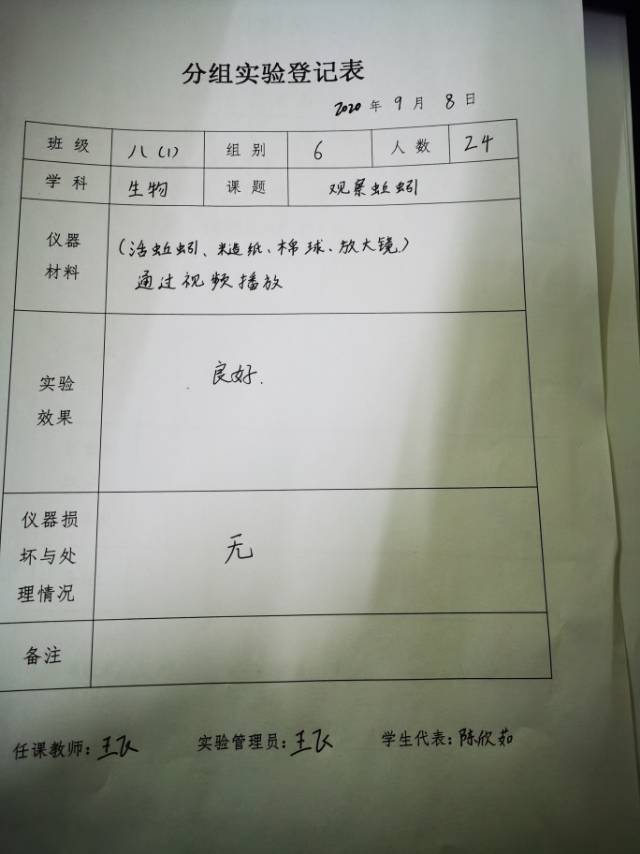 分组实验登记表
2020 年 9 月 8 日
班级 八(1) 组别 6 人数 24
学科 生物 课题 观察蚯蚓
仪器材料 (活蚯蚓、糙纸、棉球、放大镜.)
通过视频播放
实验效果 良好.
仪器损坏与处理情况 无
备注
任课教师:王飞 实验管理员:王飞 学生代表:陈欣茹